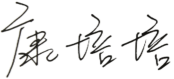 康培培